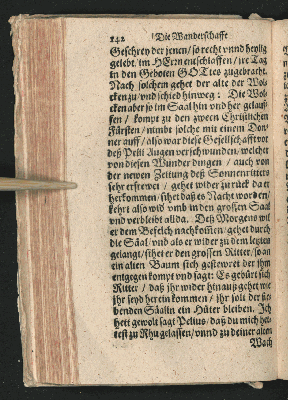 142 Die Wanderschafft
Geschrey der jenen/ so recht vnnd heylig
gelebt/ im HErn entschlaffen/ jre Tag
in den Geboten GOTtes zugebracht.
Nach solchem gehet der alte der Wol-
cken zu/ vnd schied hinweg: Die Wol-
cken aber so im Saal hin vnd her gelauf-
fen/ kompt zu den zween Christlichen
Fürsten/ nimbt solche mit einem Don-
ner auff/ also war diese Gesellschafft vor
deß Pelii Augen verschwunden/ welcher
von diesen Wunder dingen/ auch von
der newen Zeitung deß Sonnenritters
sehr erfrewet/ gehet wider zu rück da er
herkommen/ sihet daß es Nacht worden/
kehrt also wid' vmb in den grossen Saal
vnd verbleibt allda. Deß Morgens wil
er dem Befelch nachkom̃en/ gehet durch
die Säal/ vnd als er wider zu dem letzten
gelangt/ sihet er den grossen Ritter/ so an
ein alten Baum sich gestewret der jhm
entgegen kompt vnd sagt: Es gebürt sich
Ritter/ daß jhr wider hinauß gehet wie
jhr seyd herein kommen/ jhr solt der
benden Säalin ein Hüter bleiben. Ich
hett gewolt sagt Pelius/ daß du mich het-
test zu Rhu gelassen/ vnnd zu deiner alten
Wach